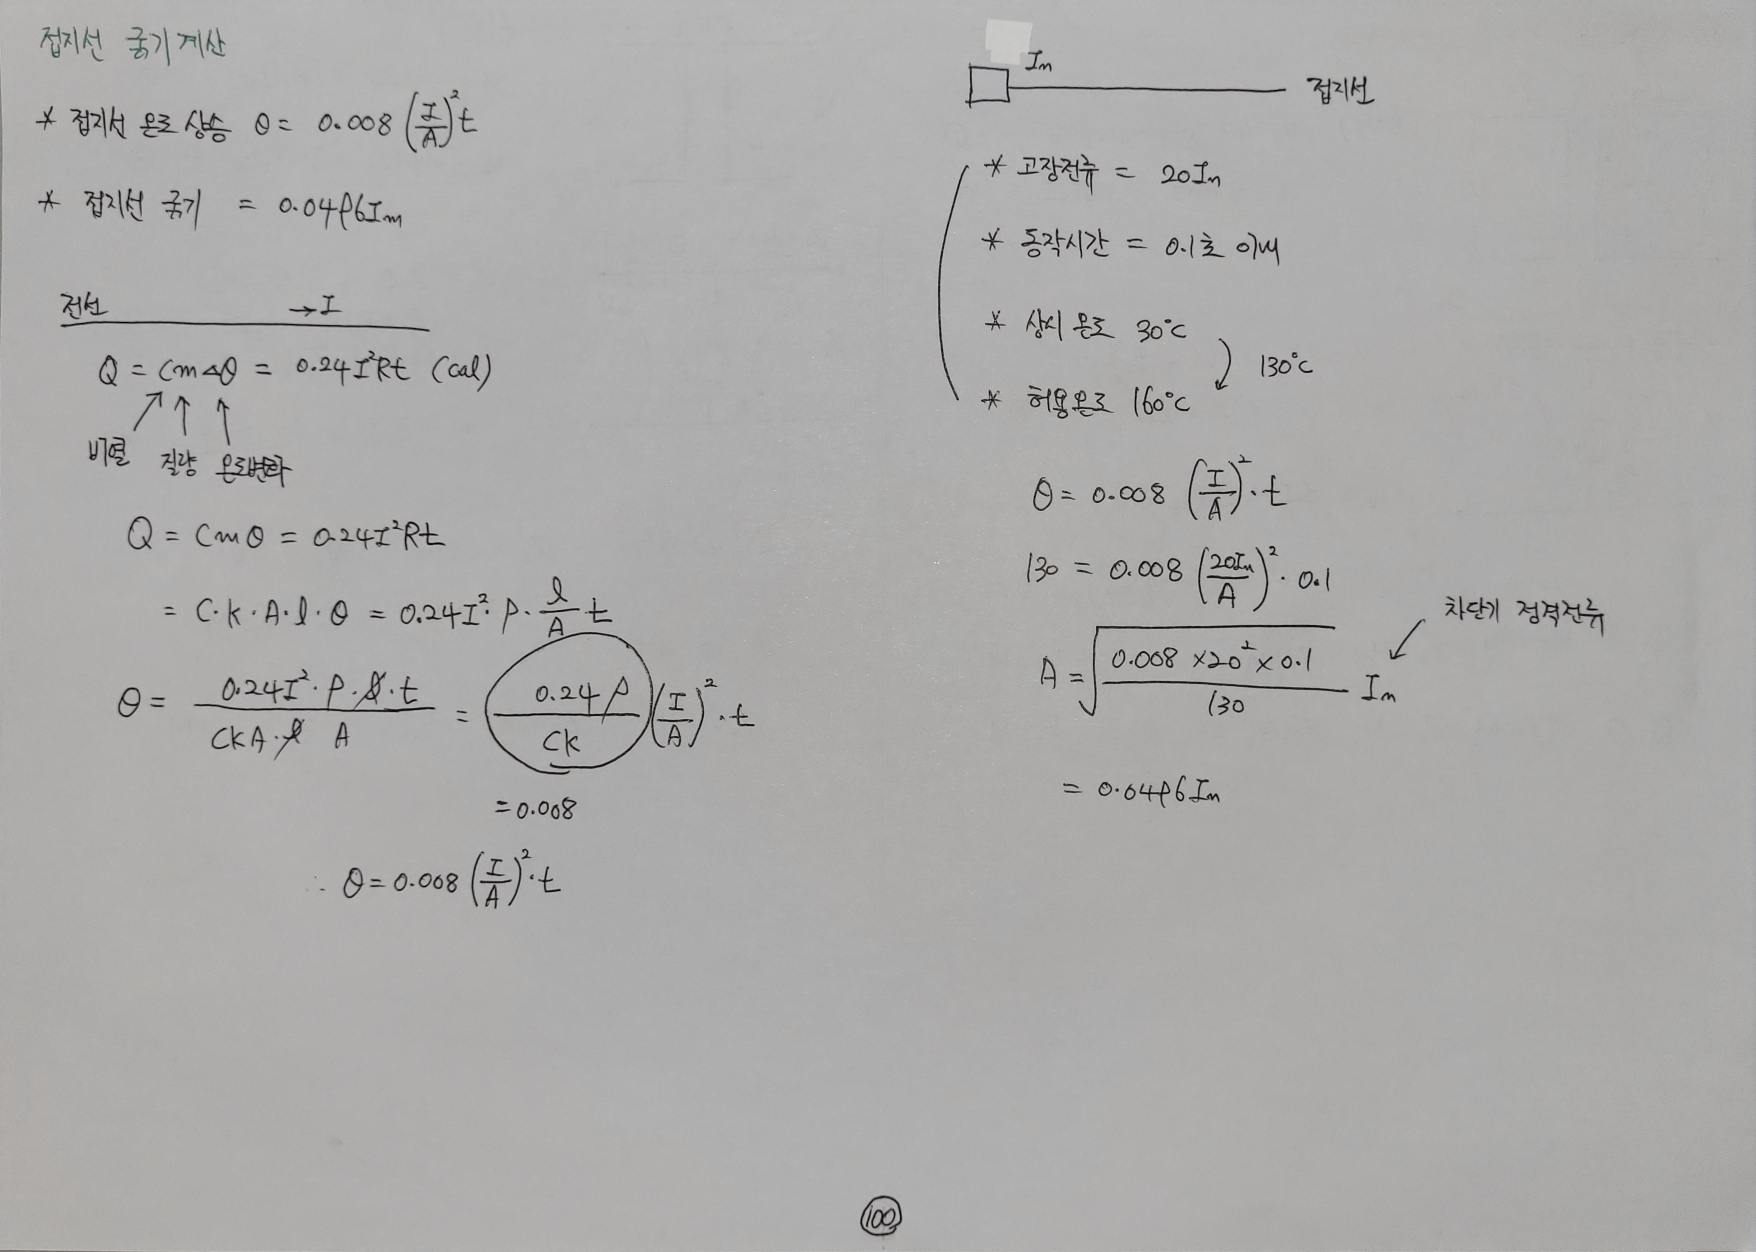 접지선 굵기 계산
* 접지선 온도 상승 θ = 0.008 (I/A)² t
* 접지선 굵기 = 0.0496 In
전선 → I
Q = Cm△θ = 0.24I²Rt (cal)
비열 질량 온도변화
Q = Cmθ = 0.24I²Rt
= C·k·A·l·θ = 0.24I²·ρ·l/A t
θ = 0.24I²·ρ·l·t / CkA·l A = 0.24ρ / Ck (I/A)²·t
= 0.008
∴ θ = 0.008 (I/A)²·t
In
접지선
* 고장전류 = 20In
* 동작시간 = 0.1초 이내
* 상시 온도 30°C
130°C
* 허용온도 160°C
θ = 0.008 (I/A)²·t
130 = 0.008 (20In/A)²·0.1
차단기 정격전류
A = √(0.008 × 20² × 0.1 / 130) In
= 0.0496 In
100